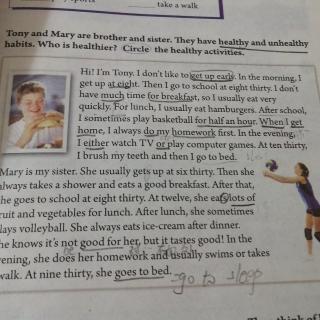 take a walk
Tony and Mary are brother and sister. They have healthy and unhealthy
habits. Who is healthier? Circle the healthy activities.
Hi! I'm Tony. I don't like to get up early. In the morning, I
get up at eight. Then I go to school at eight thirty. I don't
have much time for breakfast, so I usually eat very
quickly. For lunch, I usually eat hamburgers. After school,
I sometimes play basketball for half an hour. When I get
home, I always do my homework first. In the evening,
I either watch TV or play computer games. At ten thirty,
I brush my teeth and then I go to bed.
Mary is my sister. She usually gets up at six thirty. Then she
always takes a shower and eats a good breakfast. After that,
she goes to school at eight thirty. At twelve, she eats lots of
fruit and vegetables for lunch. After lunch, she sometimes
plays volleyball. She always eats ice-cream after dinner.
She knows it's not good for her, but it tastes good! In the
evening, she does her homework and usually swims or takes
walk. At nine thirty, she goes to bed. go to sleep